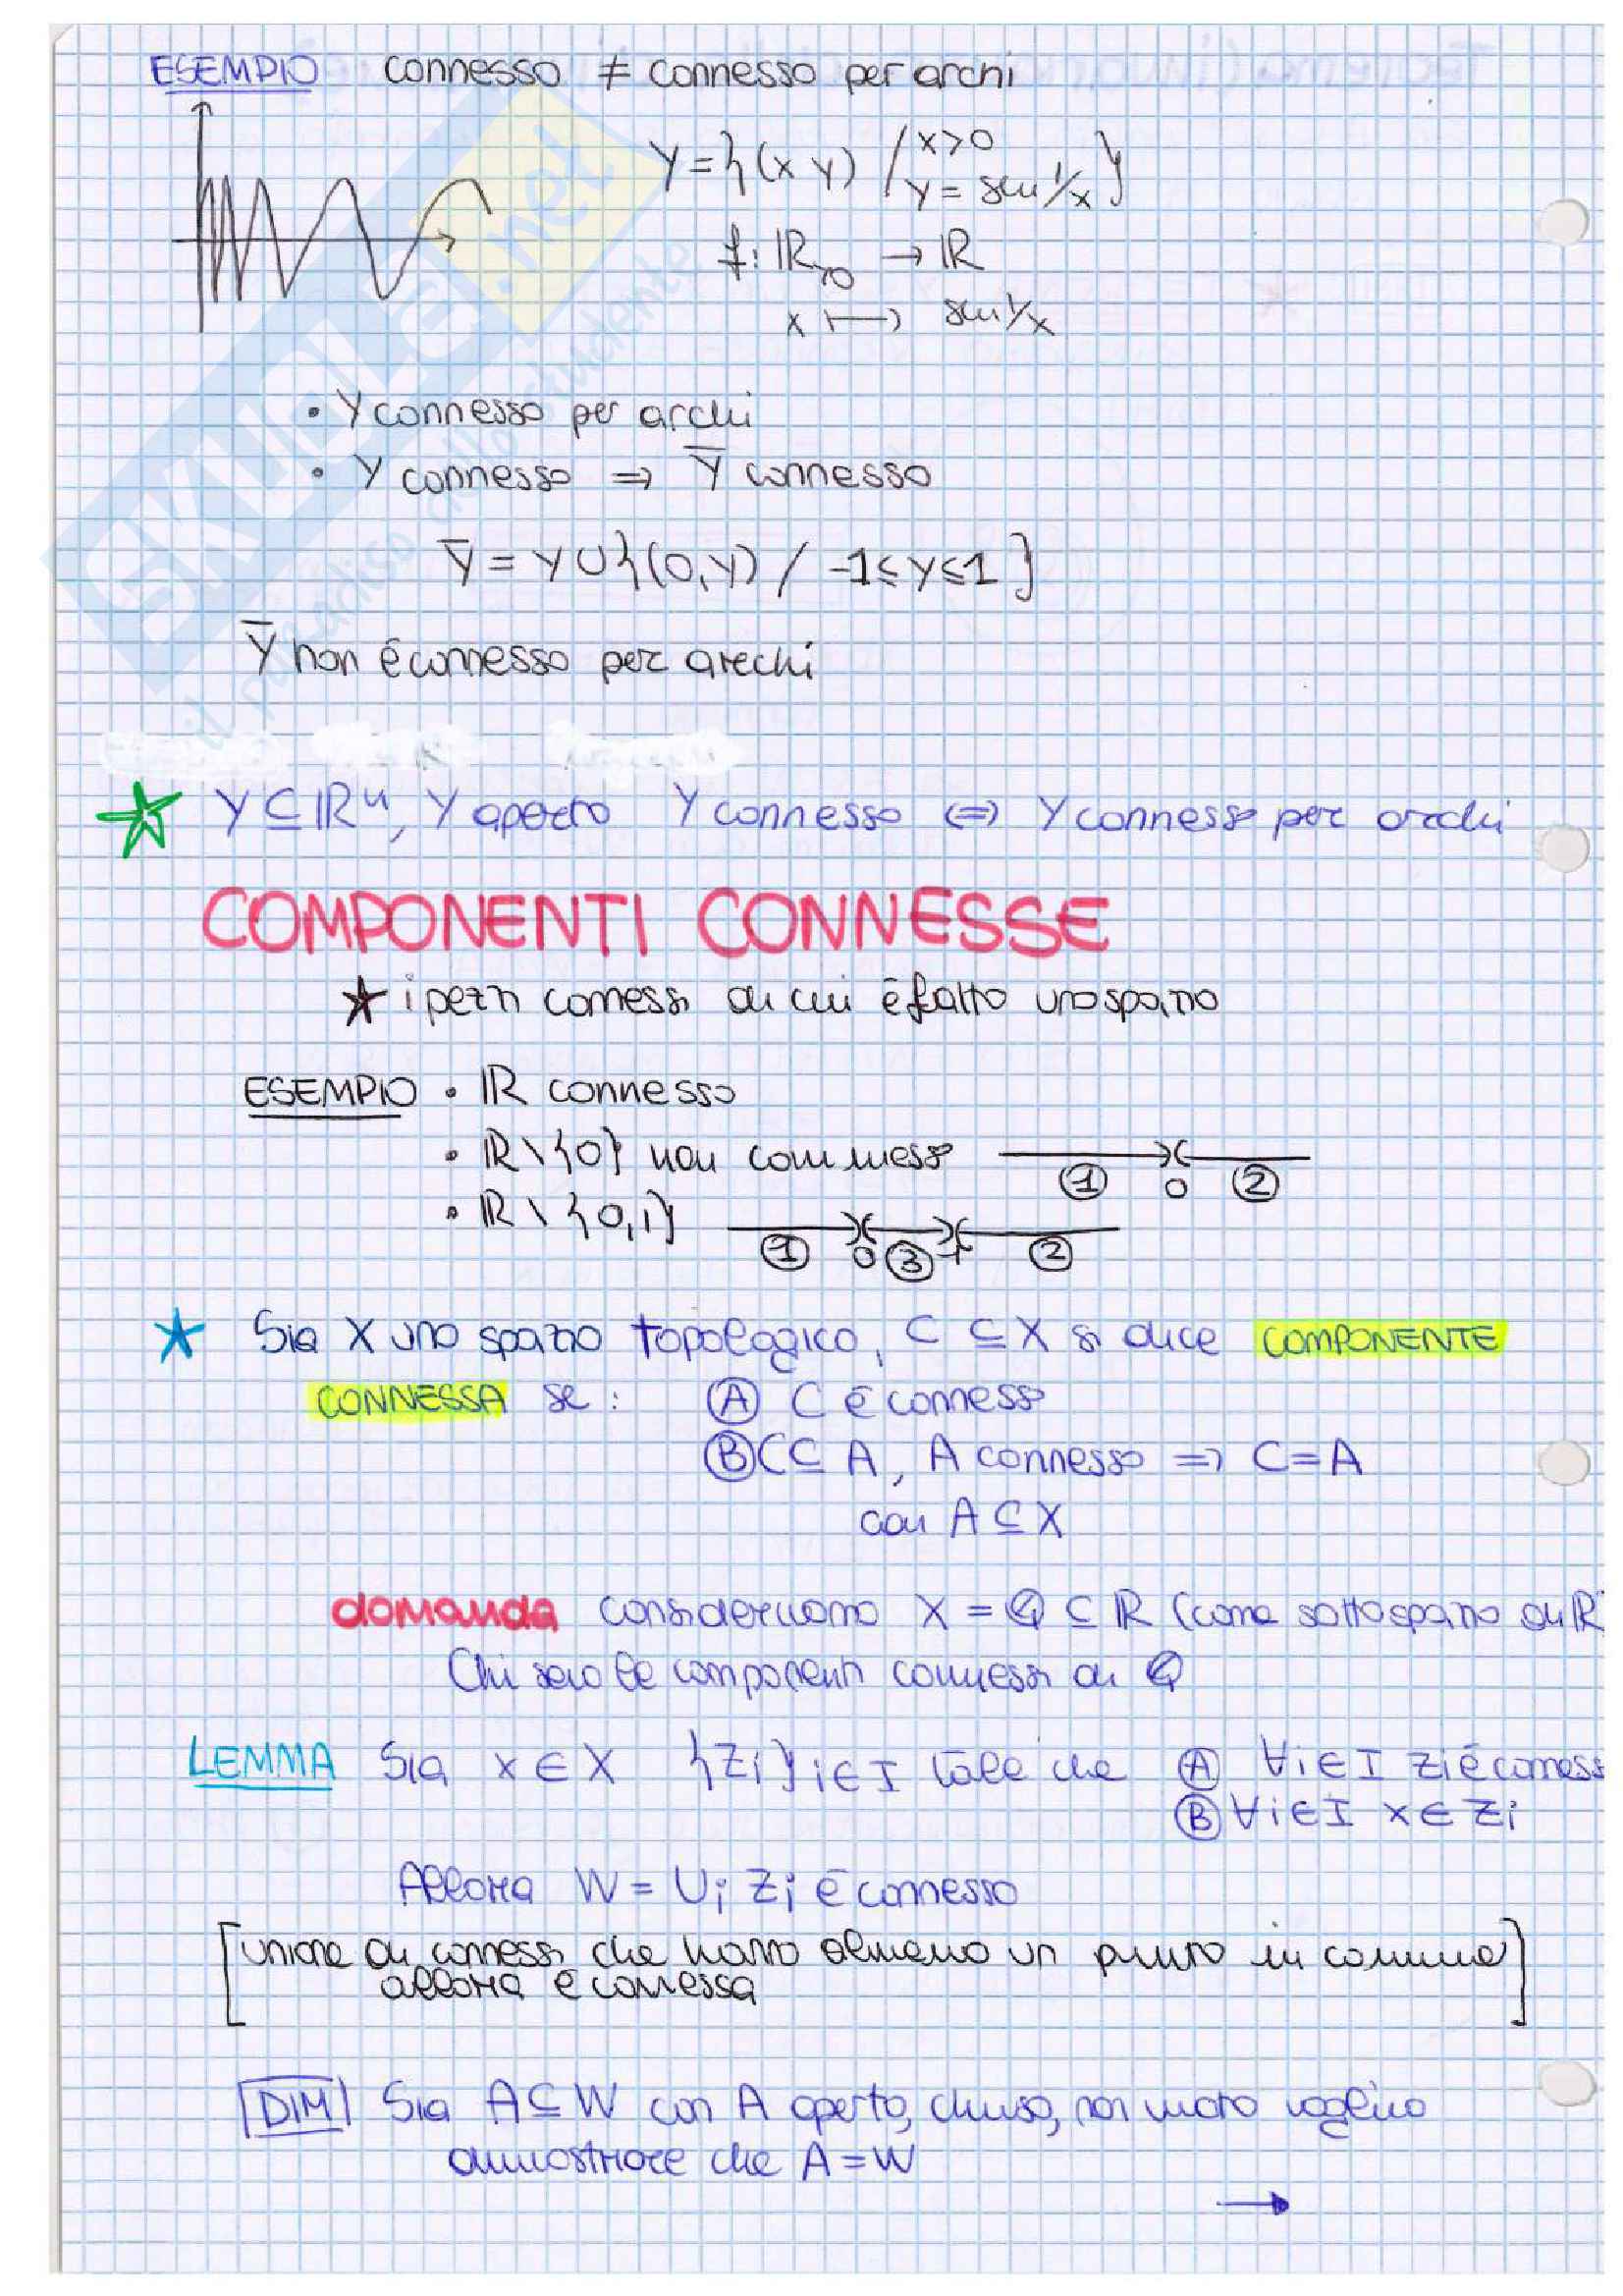 ESEMPIO connesso ≠ connesso per archi
Y = {(x y) / x>0
y = sin 1/x}
f: ℝ>0 → ℝ
x ↦ sin 1/x
• Y connesso per archi
• Y connesso ⇒ Y̅ connesso
Y̅ = Y ∪ {(0,y) / -1≤y≤1}
Y̅ non è connesso per archi
Y ⊆ ℝⁿ, Y aperto Y connesso ⇔ Y connesso per archi
COMPONENTI CONNESSE
★ i pezzi connessi di cui è fatto uno spazio
ESEMPIO • ℝ connesso
• ℝ \ {0} non connesso
① 0 ②
• ℝ \ {0,1}
① 0 ③ 1 ②
★ Sia X uno spazio topologico, C ⊆ X si dice COMPONENTE
CONNESSA se: Ⓐ C è connesso
Ⓑ C ⊆ A, A connesso ⇒ C=A
con A ⊆ X
domanda consideriamo X = Q ⊆ ℝ (come sottospazio di ℝ
Chi sono le componenti connessi di Q
LEMMA Sia x ∈ X {Zi}i∈I tale che Ⓐ ∀i∈I Zi è conness
Ⓑ ∀i∈I x∈Zi
Allora W = ∪i Zi è connesso
[unione di connessi che hanno almeno un punto in comune]
allora è connessa
DIM Sia A⊆W con A aperto, chiuso, non vuoto voglio
dimostrare che A=W
→
SKUOLA.net
il paradiso dello studente